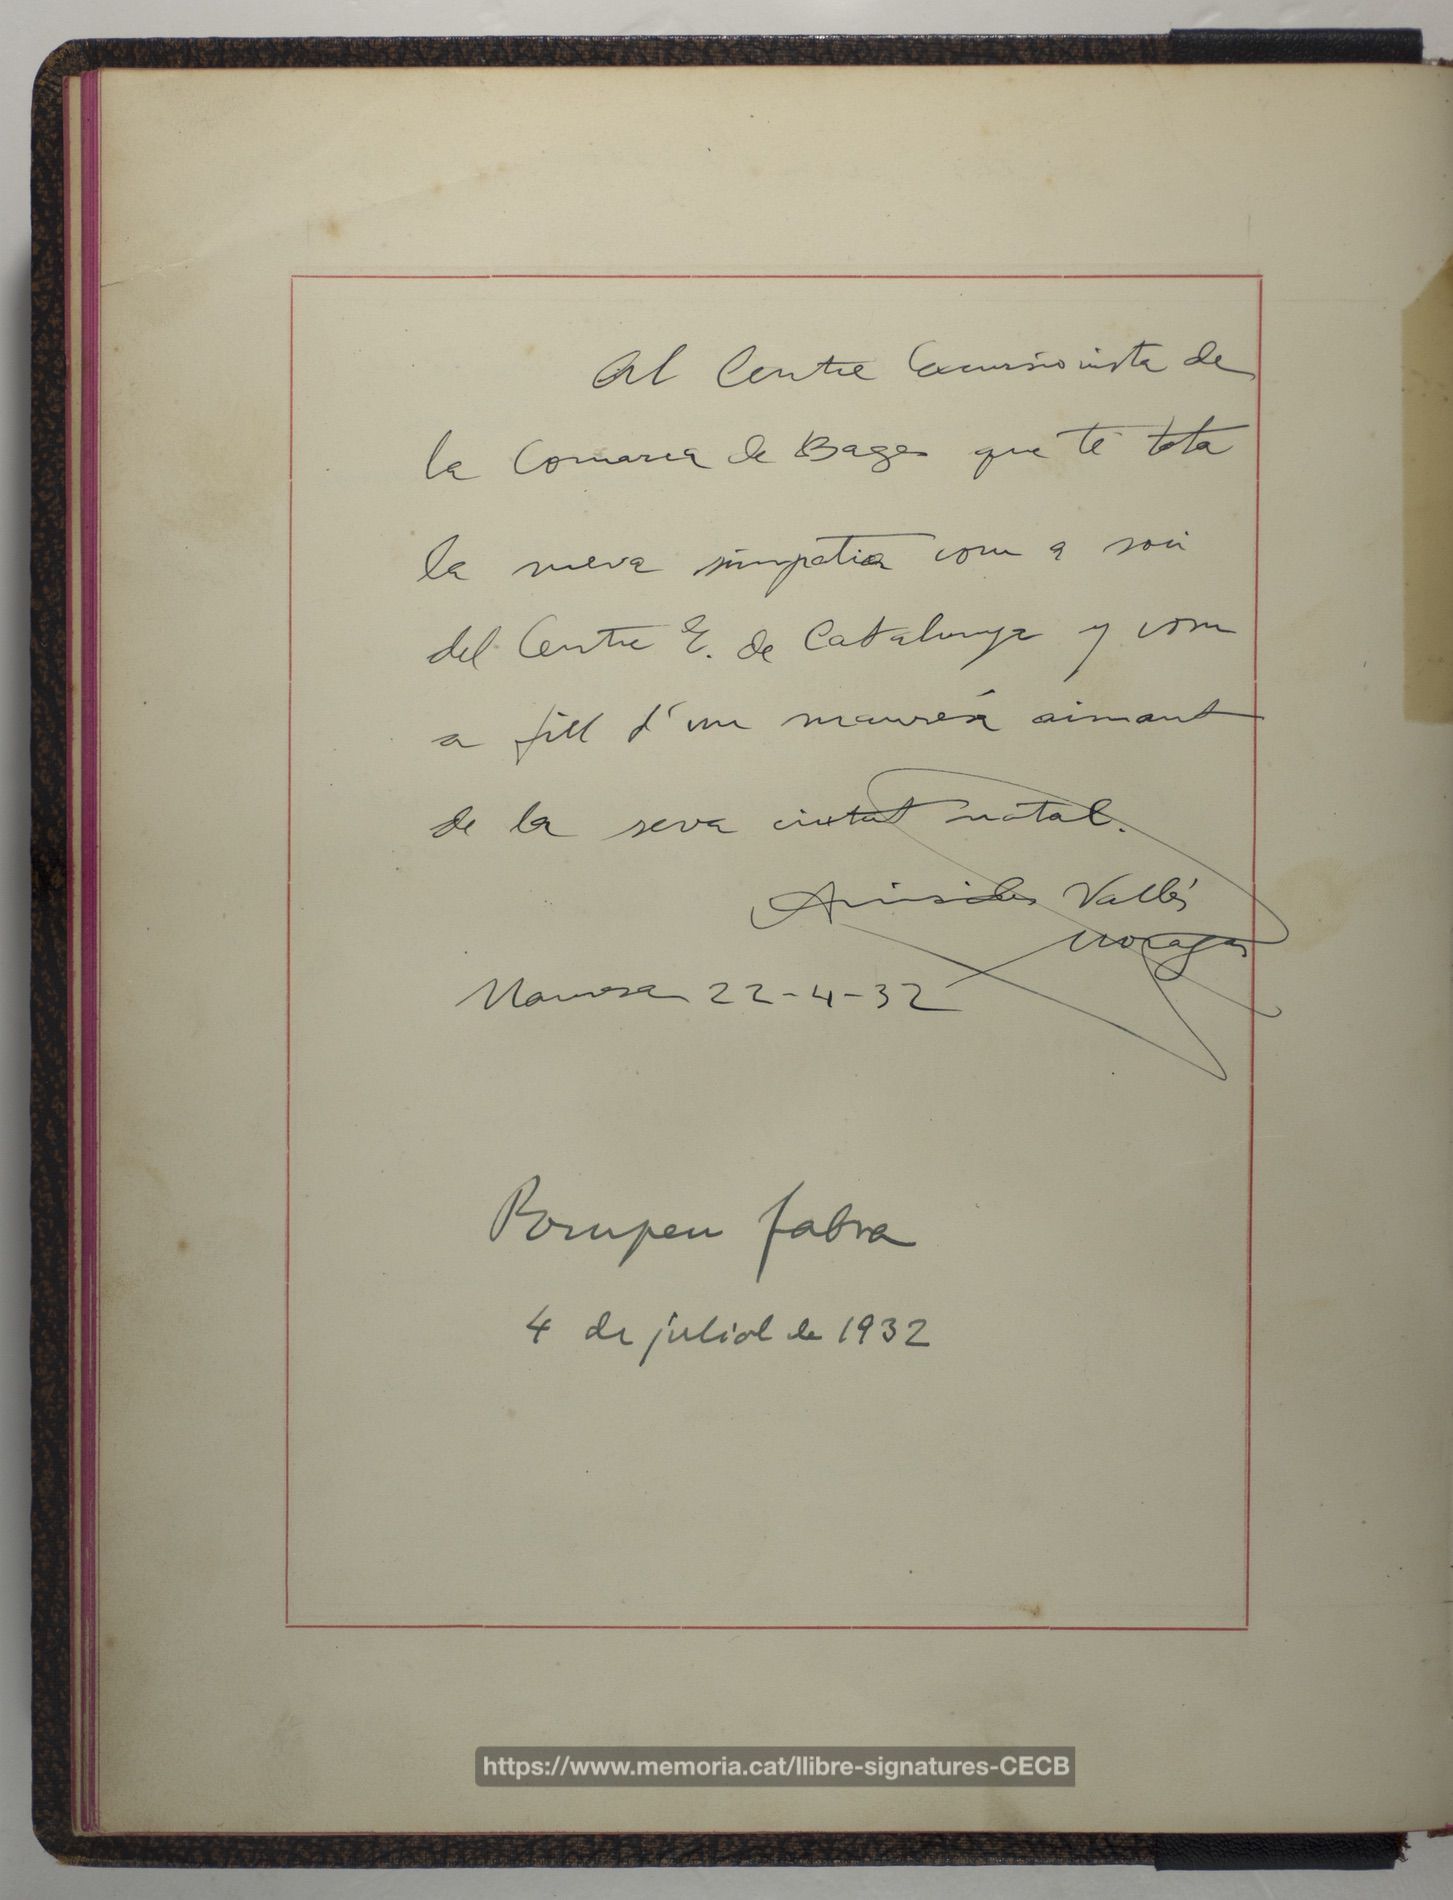 Al Centre Excursionista de
la Comarca de Bages que té tota
la meva simpatia com a soci
del Centre E. de Catalunya y com
a fill d'un manresà aimant
de la seva ciutat natal.
Vallés
Moragas
Manresa 22-4-32
Pompeu Fabra
4 de juliol de 1932
https://www.memoria.cat/llibre-signatures-CECB